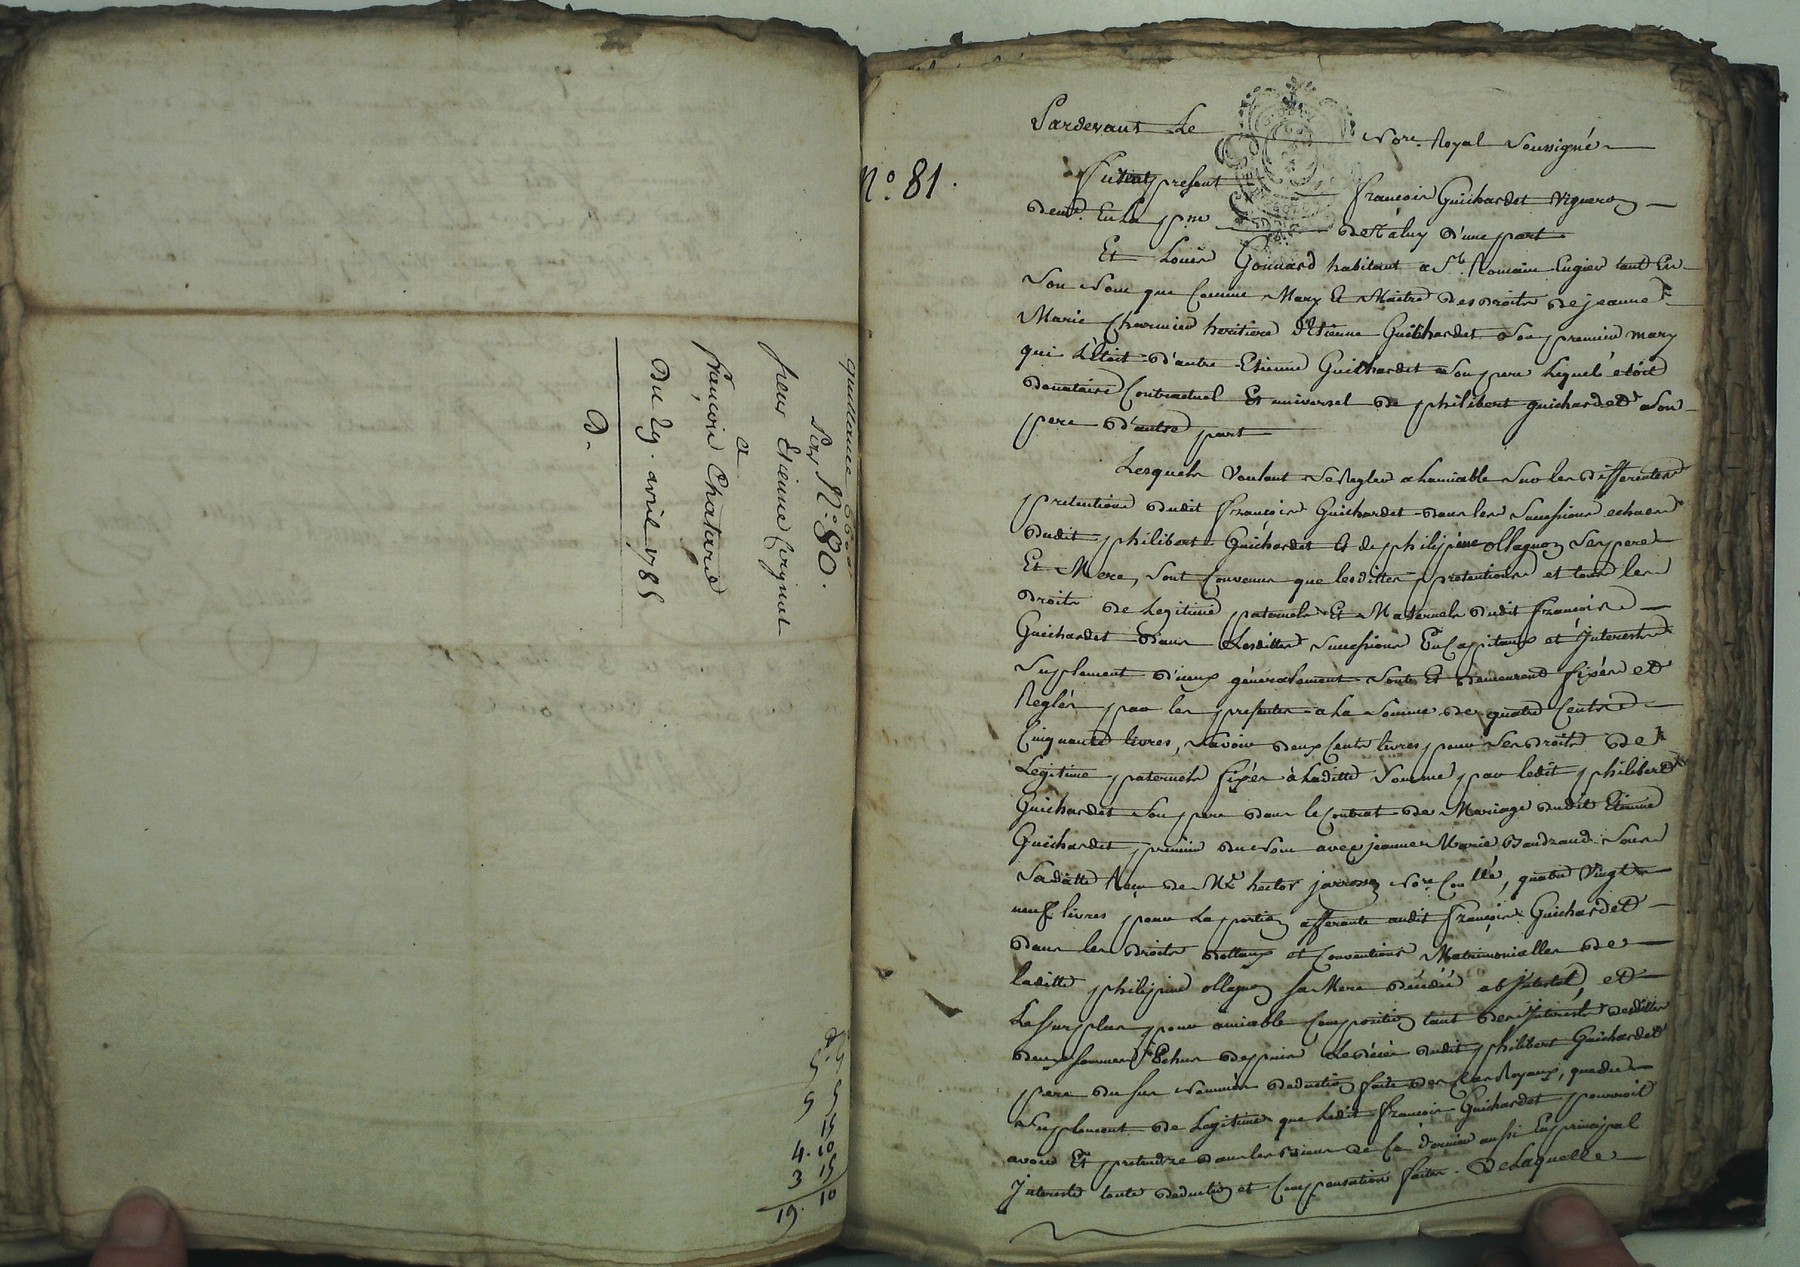 quittance 660#
Sixx N.o 80.
pour Etienne Peyrard
a
françois Chatard
Du 29. avril 1785
D.
5 5
5 5
15
4. 10
3 15
19. 10
N.o 81.
Pardevant Le Nore. Royal Soussigné
furent present françois Guichardet Vigneron
demt. En La psse de St aluy d'une part
Et Louis Gonnard habitant a St. Romain Engier tant En
Son Nom que Comme Mary Et Maitre des droits de jeanne
Marie Charmier heritiere d'Etienne Guichardet Son premier mary
qui L'étoit d'autre Etienne Guichardet Son pere Lequel étoit
donataire Contractuel Et universel de philibert guichardet Son
pere d'autre part
Lesquels Voulant Se Regler a Lamiable Sur les differentes
pretentions dudit françois Guichardet dans les Successions echues
dudit philibert Guichardet Et de philipine ollagnon Ses pere
Et Mere, Sont Convenus que lesdittes pretentions et tous les
droits de Legitime paternels Et Maternels dudit françois
Guichardet dans Lesdittes Successions En Capitaux et Interests
Suplement d'iceux généralement Sont Et demeurent fixés et
Reglés par les presentes a La Somme de quatre Cents
Cinquante livres, Savoir deux Cents livres pour Ses droits de
Legitime paternels fixés à Laditte Somme par ledit philibert
Guichardet Son pere dans le Contrat de Mariage dudit Etienne
Guichardet premier du Nom avec jeanne Marie Baudrand Sous
Sa datte Reçu de Me hector jarrosson Nore Conlle, quatre Vingt
neuf livres pour La portion afferante audit françois Guichardet
dans les droits dottaux et Conventions Matrimonialles de
laditte philipine ollagnon Sa Mere décédée ab Intestat, et
Le Surplus pour amiable Composition tant des Interests desdittes
deux Sommes Echus depuis Le décès dudit philibert Guichardet
pere du Sus Nommés deduction faitte des Cas Royaux, que du
Suplement de Legitime que Ledit françois Guichardet pourroit
avoir Et pretendre dans les Biens de Ce dernier aussi En principal
Interests toute deduction et Compensation faites. De Laquelle